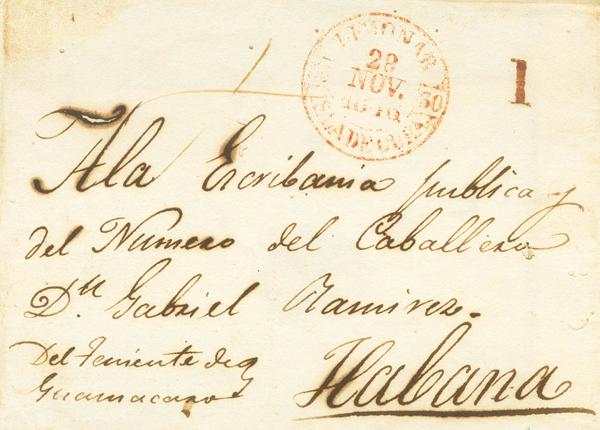 LIMONAR
28
NOV.
1846
ISLA DE CUBA
30
1
A la Escribania publica y
del Numero del Caballero
Dn. Gabriel Ramirez.
Habana
Del Teniente de
Guamacaro